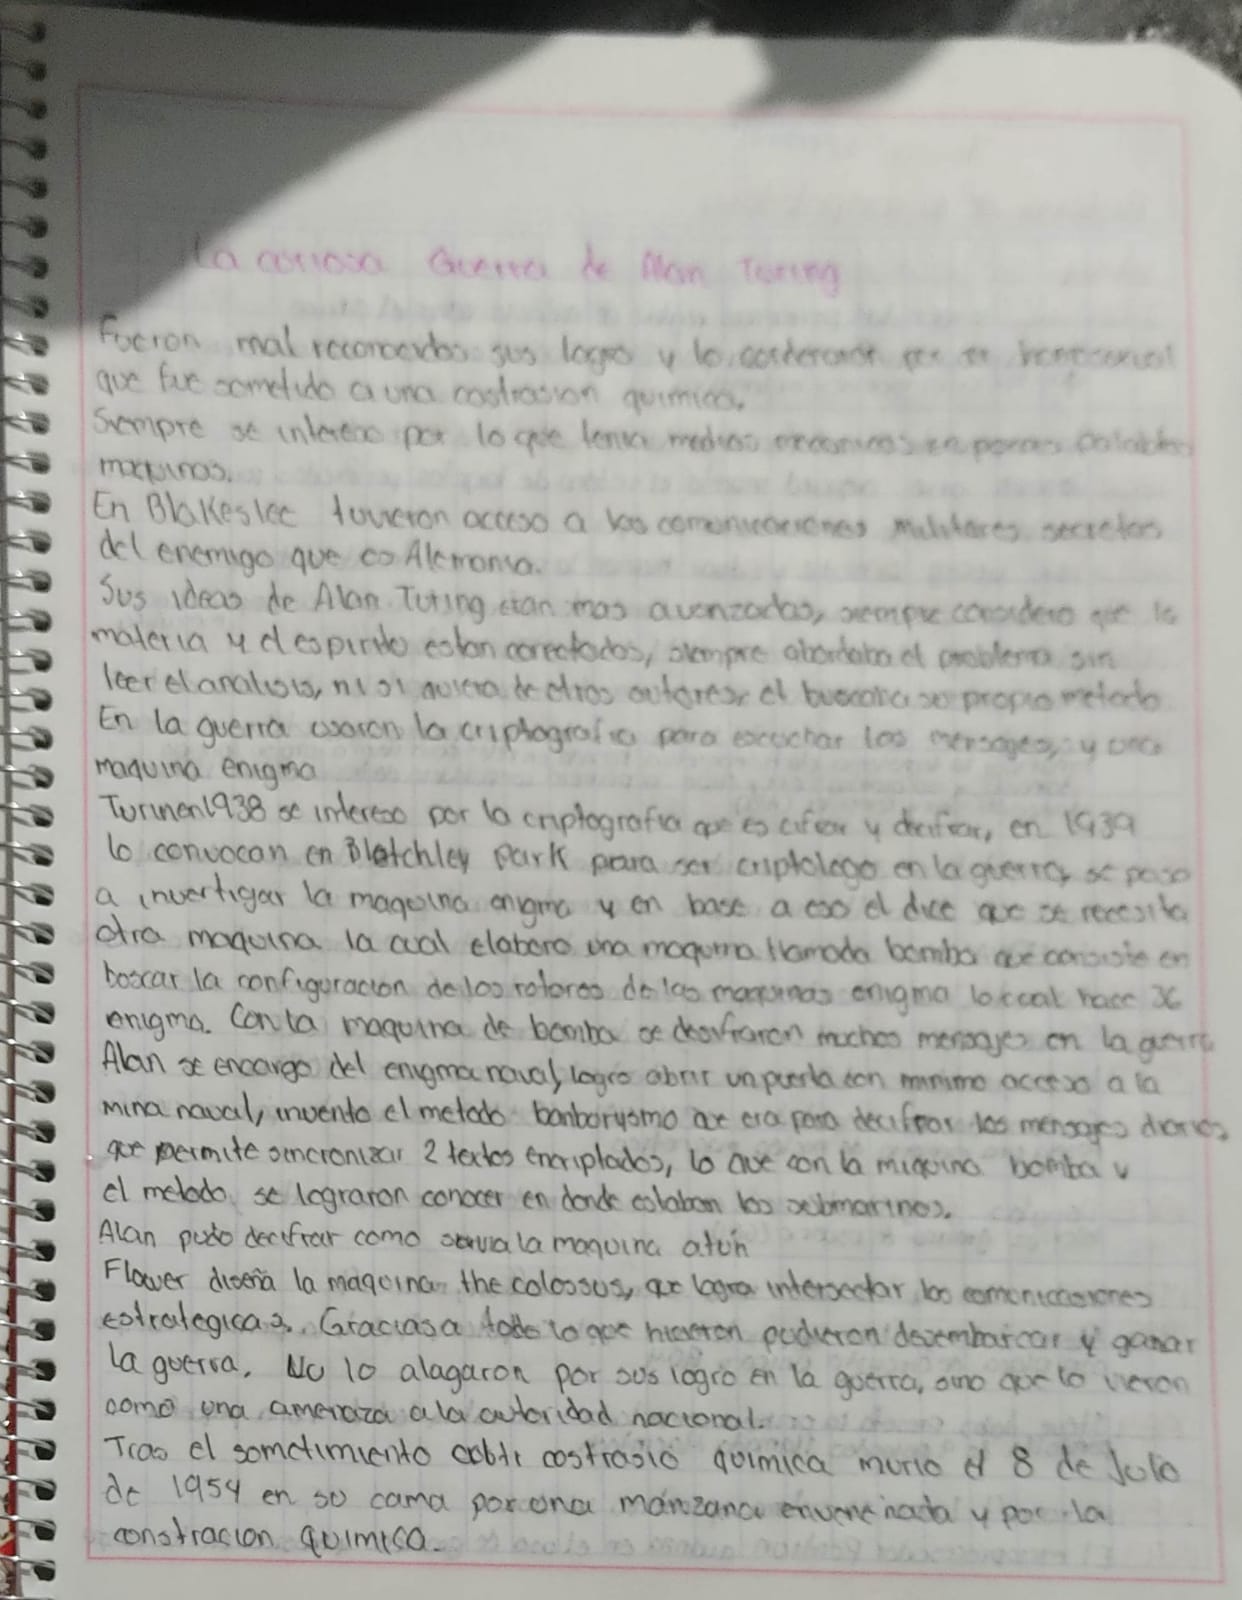 La curiosa Guerra de Alan Turing
Fueron mal reconocidos sus logro y lo condenaron por
que fue sometido a una castrasion quimica.
Siempre se intereso por lo que tenia medios mecanicos en pocas palabras
maquinas.
En Blakeslee tuvieron acceso a las comunicaciones militares secretas
del enemigo que es Alemania.
Sus ideas de Alan Turing eran mas avanzadas, siempre considero que la
materia y el espirito estan conectados, siempre abordaba el problema sin
leer el analisis, ni si quiera de otros autores, el buscaba su propio metodo
En la guerra usaron la criptografia para escuchar los mensages, y una
maquina enigma
Turinen 1938 se intereso por la criptografia que es cifrar y decifrar, en 1939
lo convocan en Bletchley Park para ser criptologo en la guerra, se paso
a invertigar la maquina enigma y en base a eso el dice que se necesita
otra maquina la cual elaboro una maquina llamada bomba que consiste en
boscar la configuracion de los rotores de las maquinas enigma lo cual hace 36
enigma. Con la maquina de bomba se descifraron muchos mensajes en la guerra
Alan se encargo del enigma naval, logro abrir un puerta con minimo acceso a la
mina naval, invento el metodo banborysmo que era para decifrar los mensages diarios
que permite sincronizar 2 textos encriptados, lo que con la miquina bomba y
el metodo se lograron conocer en donde estaban los submarinos.
Alan pudo decifrar como la maquina atun
Flower diseña la maquina the colossus, que logra intersectar las comunicaciones
estrategicas. Gracias a todo lo que hicieron pudieron desembarcar y ganar
la guerra. No lo alagaron por sus logro en la guerra, sino que lo vieron
como una amenaza a la autoridad nacional.
Tras el sometimiento costrasio quimica murio el 8 de Julo
de 1954 en su cama por una manzana envenenada y por la
constracion quimica.